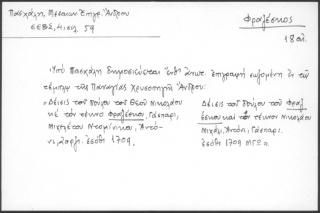 Πασχάλη, Μεσαιων. Επιγρ. Άνδρου
ΕΕΒΣ, 4, σελ 59
Φραζέσκος
18 αι.
"Υπό Πασχάλη δημοσιεύεται επιγραφή σωζομένη εν τω
τέμπλω της Παναγίας Χρυσοπηγής Άνδρου:
"Δέισις του δούλου του Θεού Νικολάου
κέ των τέκνο Φραζέσκου, Γάσπαρι,
Μιχελέτου Ντομίνικου, Αντό-
νι, εσόθι 1709.
Δέισις του δούλου του Φραζ
έσκου και των τέκνον Νικολάου
Μιχάλι, Αντόνι, Γάσπαρι.
Εσόθι 1709